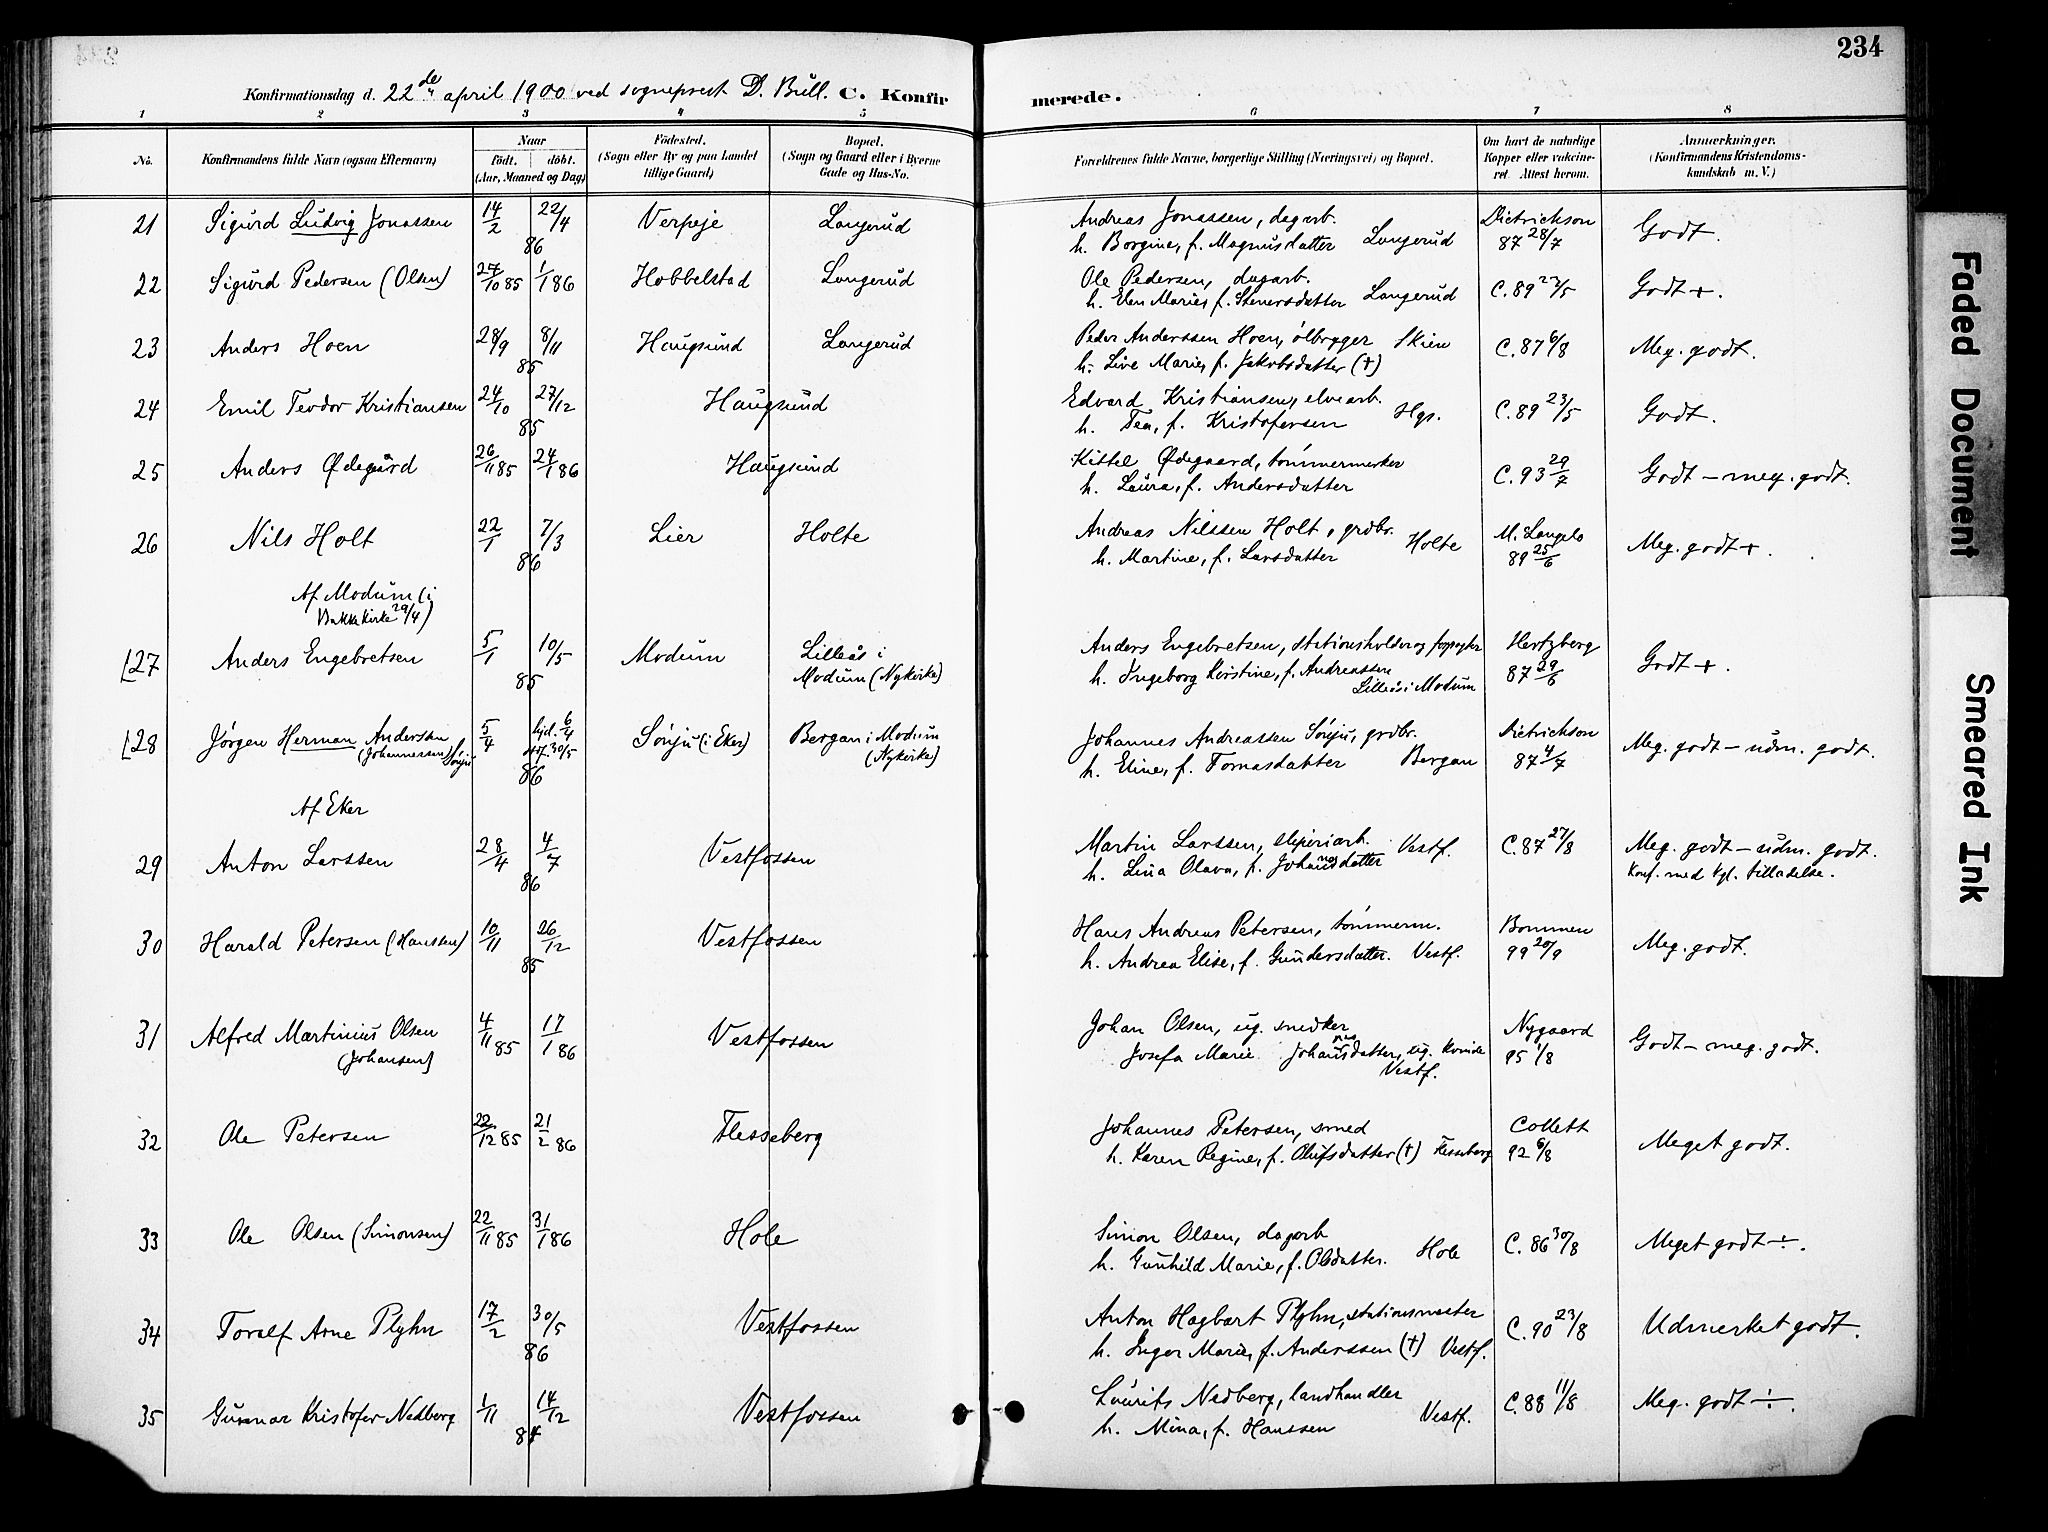 234
Konfirmationsdag d. 22de april 1900 ved sogneprest D. Bull. C. Konfirmerede.
1 2 3 4 5 6 7 8
No. Konfirmandens fulde Navn (ogsaa Efternavn) Naar født. døbt. (Aar, Maaned og Dag) Fødested. (Sogn eller By og paa Landet tillige Gaard) Bopæl. (Sogn og Gaard eller i Byerne Gade og Hus-No. Forældrenes fulde Navne, borgerlige Stilling (Næringsvei) og Bopæl. Om havt de naturlige Kopper eller vaccineret. Attest herom. Anmærkninger. (Konfirmandens Kristendomskundskab m. V.)
21 Sigurd Ludvig Jonassen 14/2 22/4 86 Verpeje Langerud Andreas Jonassen, dagarb. Dietrichson Godt.
h. Borgine, f. Magnusdatter Langerud 87 28/7
22 Sigurd Pedersen (Olsen) 27/10 85 1/1 86 Hobbelstad Langerud Ole Pedersen, dagarb. C. 89 23/5 Godt +.
h. Elen Marie, f. Stenersdatter Langerud
23 Anders Hoen 28/9 8/11 85 Haugsund Langerud Peder Anderssen Hoen, ølbrygger Skien C. 87 6/8 Meg. godt.
h. Live Marie, f. Jakobsdatter (†)
24 Emil Teodor Kristiansen 24/10 27/12 85 Haugsund Edvard Kristiansen, elvearb. Hgs. C. 89 23/5 Godt.
h. Tea, f. Kristofersen
25 Anders Ødegård 26/11 85 24/1 86 Haugsund Kittel Ødegaard, tømmermerker C. 93 29/7 Godt – meg. godt.
h. Laura, f. Andersdatter
26 Nils Holt 22/1 7/3 86 Lier Holte Andreas Nilssen Holt, grdbr. Holte M. Langels Meg. godt +.
h. Martine, f. Larsdatter 89 25/6
Af Modum (i
Bakke kirke 29/4)
27 Anders Engebretsen 5/1 10/5 85 Modum Lilleås i Modum (Nykirke) Anders Engebretsen, stationsholder og Hertzberg Godt +.
h. Ingeborg Kirstine, f. Andreassen 87 29/6
Lilleås i Modum
28 Jørgen Herman Anderssen (Johannessen) Sønju 5/4 hjd. 6/4 stf. 30/5 86 Sønju (i Eker) Bergan i Modum (Nykirke) Johannes Andreassen Sønju, grdbr. Dietrichson Meg. godt – udm. godt.
h. Eline, f. Tomasdatter Bergan 87 4/7
Af Eker
29 Anton Larssen 28/4 4/7 86 Vestfossen Martin Larssen, sliperiarb. Vestf. C. 87 27/8 Meg. godt – udm. godt.
h. Lina Olava, f. Johannesdatter Konf. med kgl. tilladelse.
30 Harald Petersen (Hanssen) 10/11 26/12 85 Vestfossen Hans Andreas Petersen, tømmerm. Bommen Meg. godt.
h. Andrea Elise, f. Gundersdatter. Vestf. 99 20/9
31 Alfred Martinius Olsen (Johansen) 4/11 85 17/1 86 Vestfossen Johan Olsen, ug. snedker Nygaard Godt – meg. godt.
Josefa Marie Johannesdatter, ug. kvinde 95 1/8
Vestf.
32 Ole Petersen 22/12 85 21/2 86 Flesseberg Johannes Petersen, smed Collett Meget godt.
h. Karen Regine, f. Olufsdatter (†) Flesseberg 92 6/8
33 Ole Olsen (Simonsen) 22/11 85 31/1 86 Hole Simon Olsen, dagarb C. 86 30/8 Meget godt ÷.
h. Gunhild Marie, f. Olsdatter. Hole
34 Toralf Arne Plyhn 17/2 30/5 86 Vestfossen Anton Hagbart Plyhn, stationsmester C. 90 23/8 Udmerket godt.
h. Inger Marie, f. Anderssen (†) Vestf.
35 Gunnar Kristofer Nedberg 1/11 14/12 84 Vestfossen Laurits Nedberg, landhandler Vestf. C. 88 11/8 Meg. godt ÷.
h. Mina, f. Hanssen
Faded Document
Smeared Ink